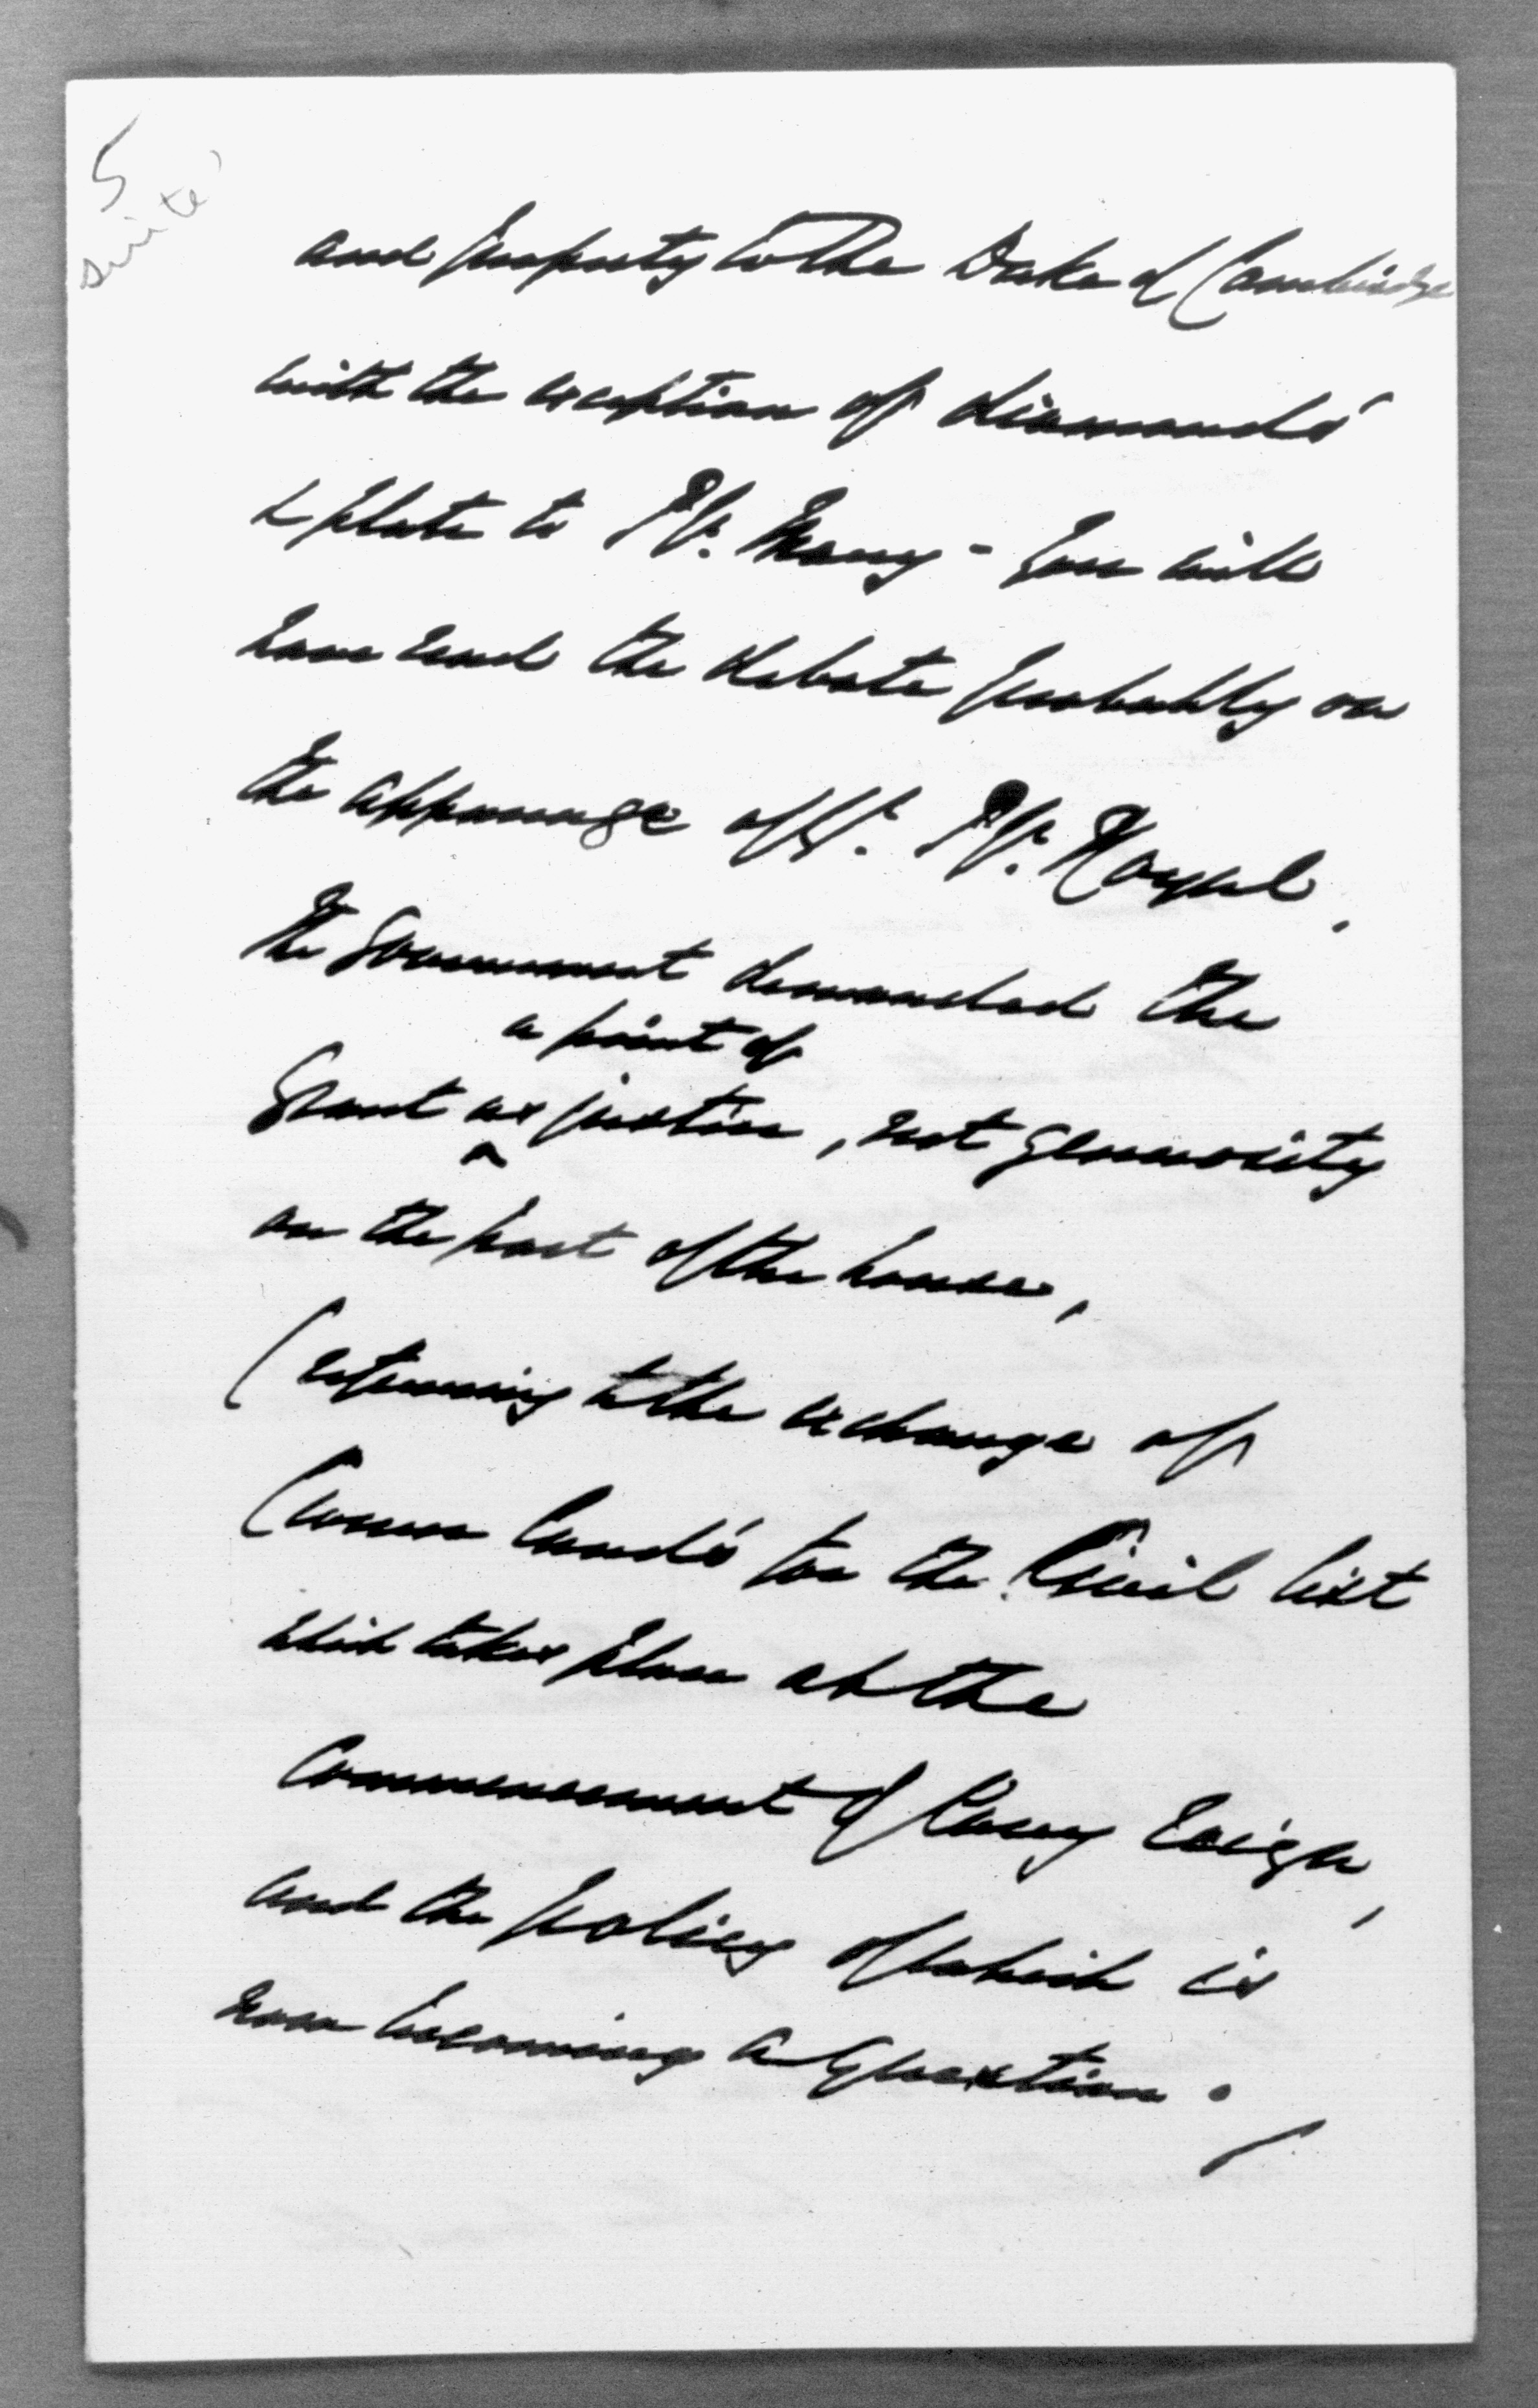 5
suite
and property to the Duke of Cambridge
with the exception of diamonds
& plate to Pss. Mary - You will
have read the debate probably on
the appanage of Pss. Royal.
the Government demanded the
a point of
Grant as justice, not generosity
on the part of the house,
(referring to the exchange of
Crown lands for the Civil list
which takes place at the
Commencement of every reign,
and the policy of which is
now becoming a question.